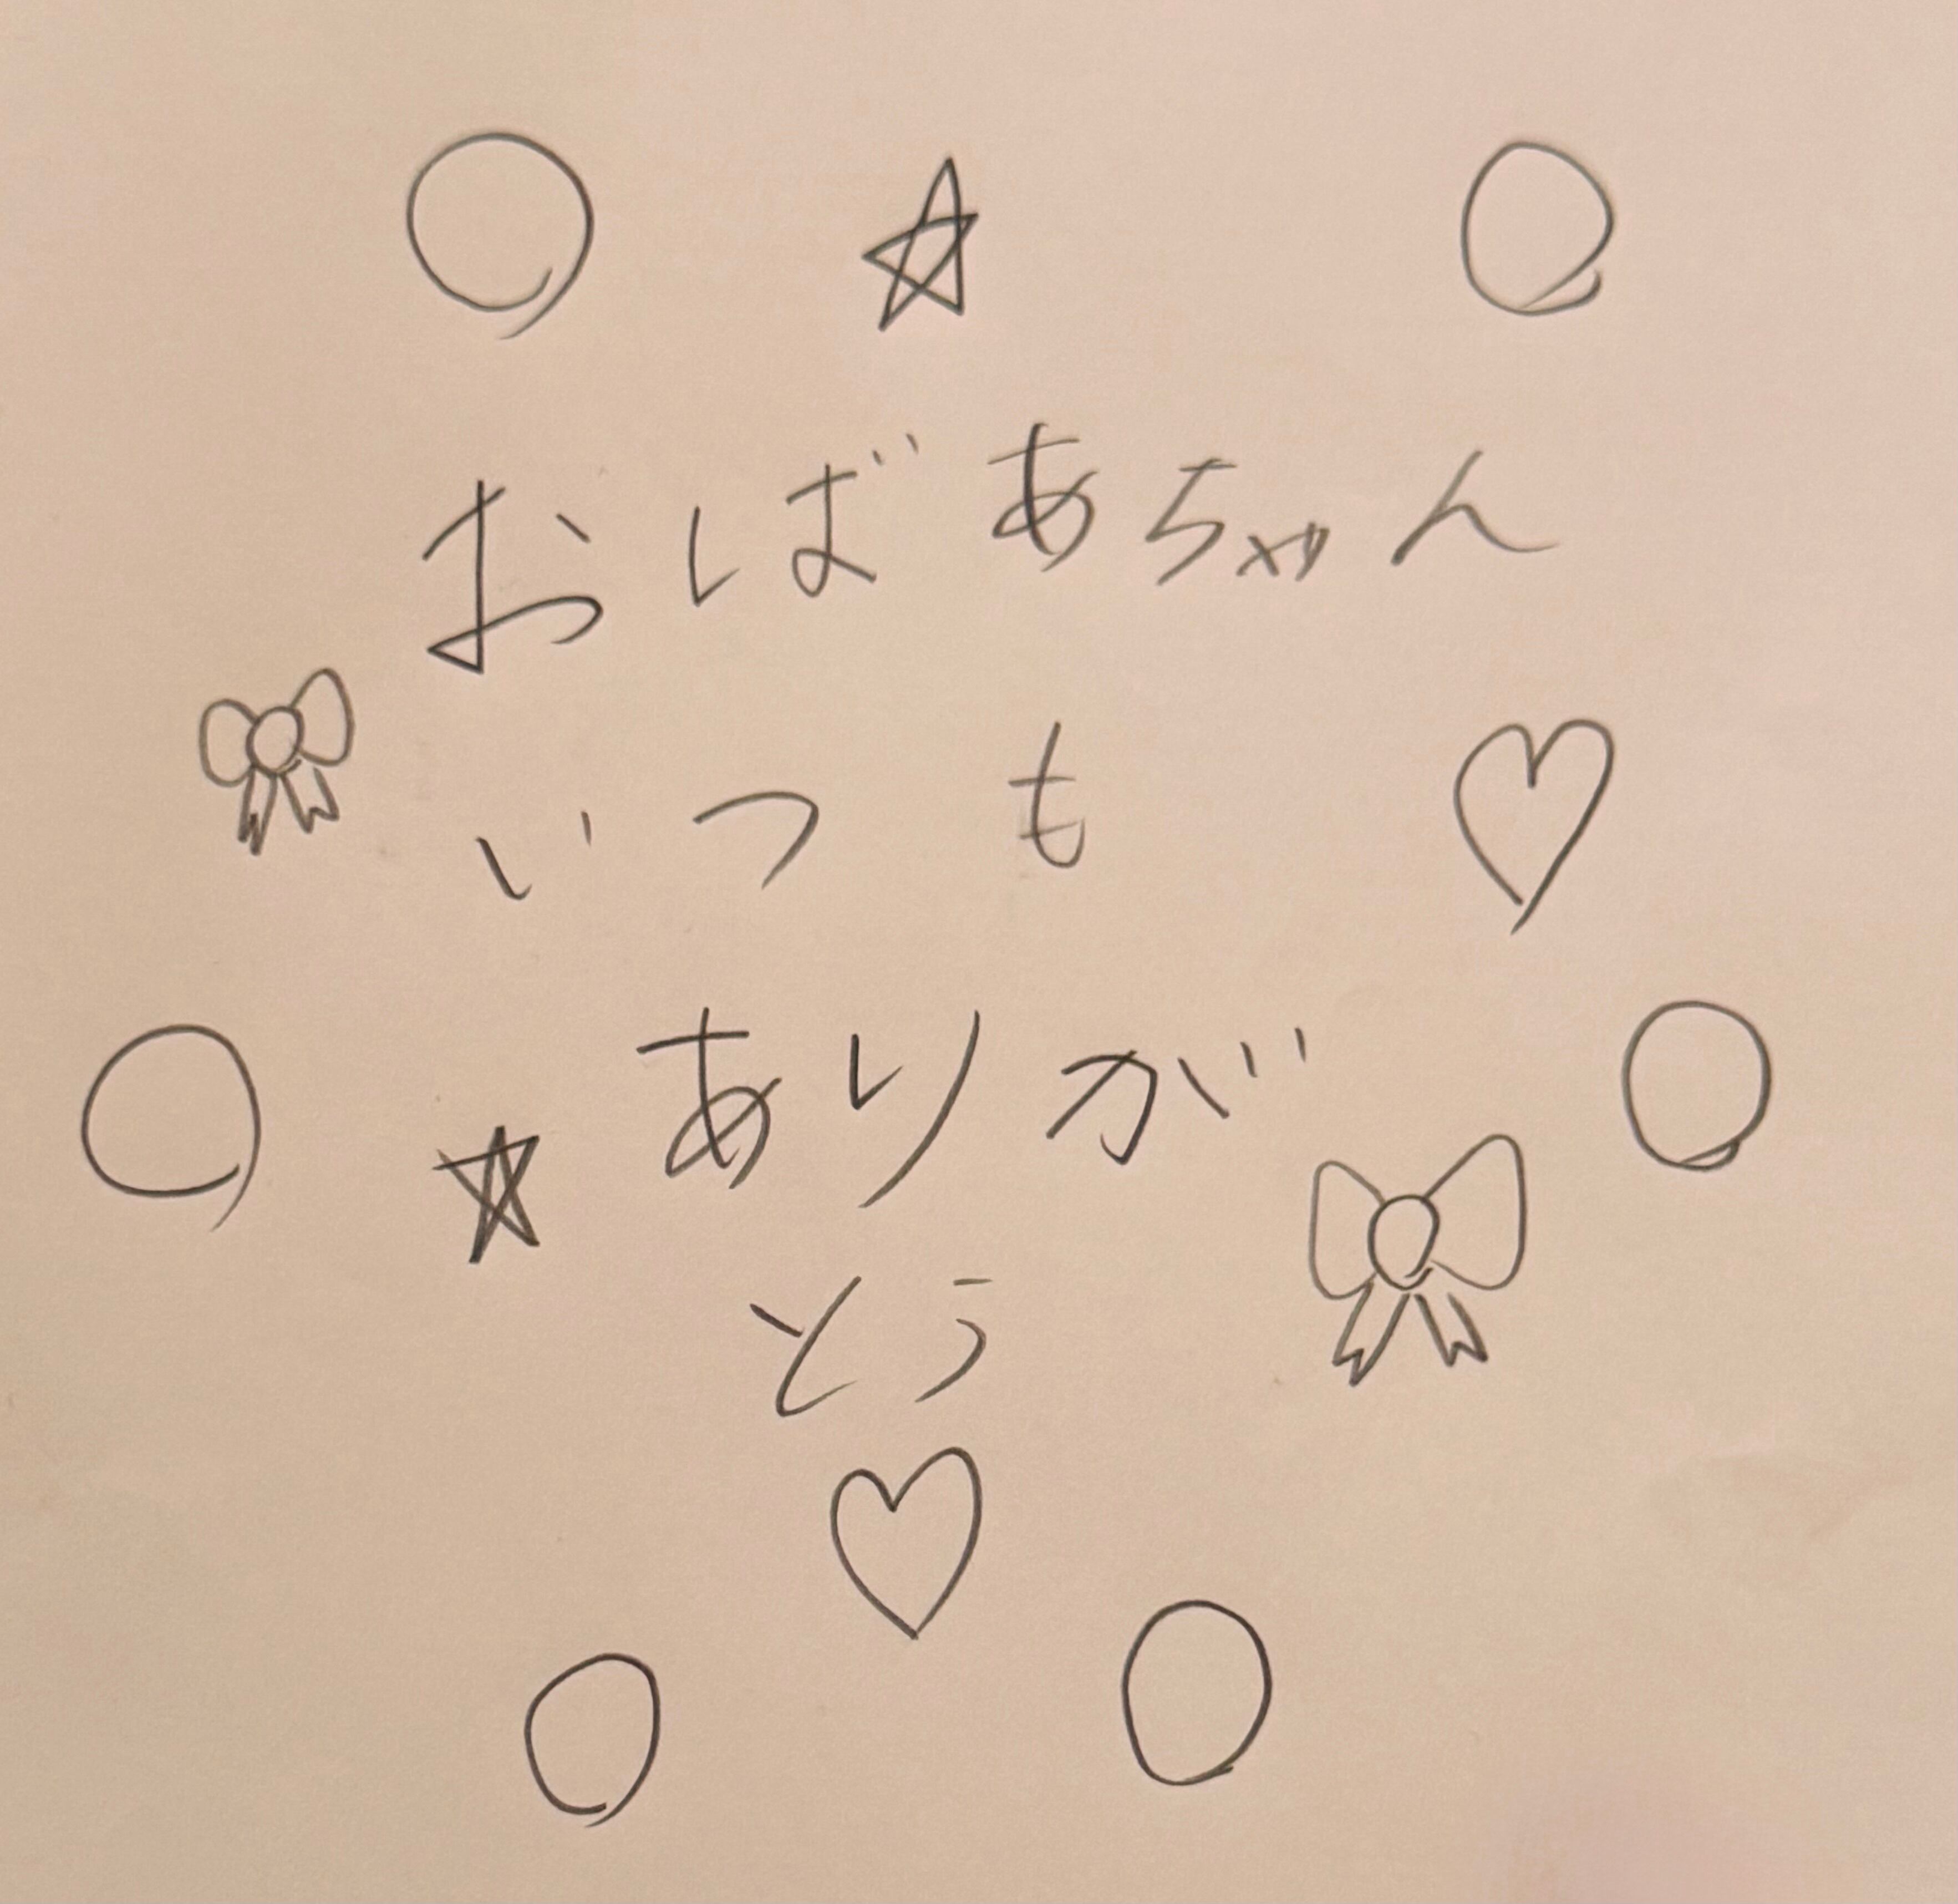 おばあちゃん
いつも
ありが
とう